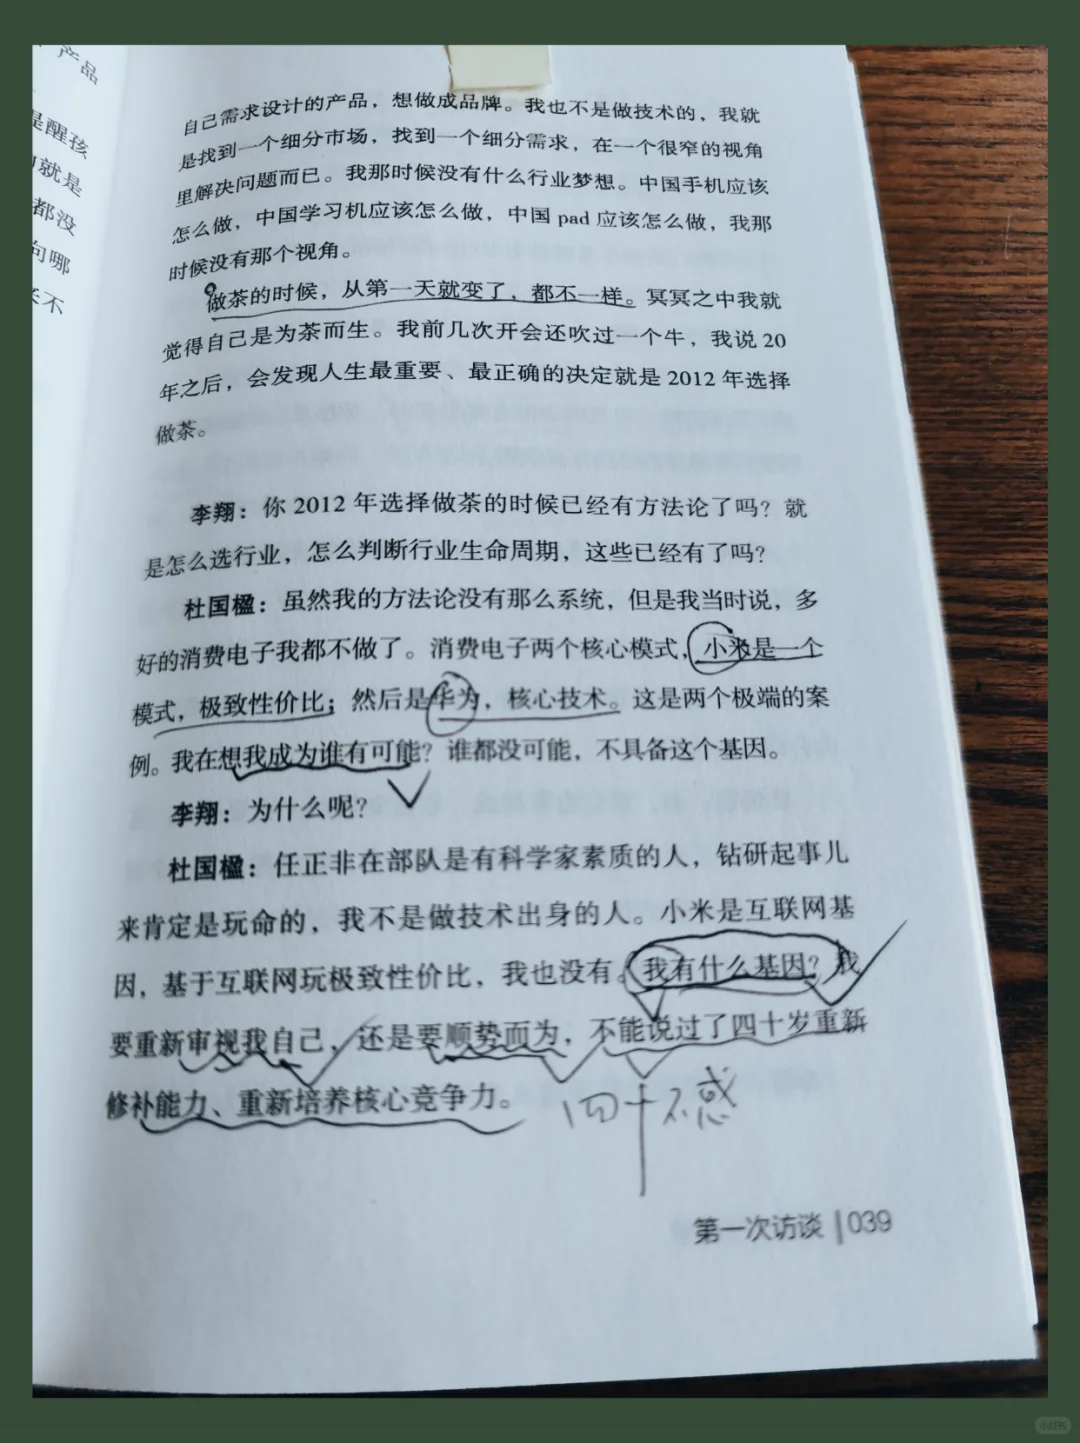 产品
是醒孩
就是
都没
句哪
不
自己需求设计的产品，想做成品牌。我也不是做技术的，我就
是找到一个细分市场，找到一个细分需求，在一个很窄的视角
里解决问题而已。我那时候没有什么行业梦想。中国手机应该
怎么做，中国学习机应该怎么做，中国 pad 应该怎么做，我那
时候没有那个视角。
做茶的时候，从第一天就变了，都不一样。冥冥之中我就
觉得自己是为茶而生。我前几次开会还吹过一个牛，我说 20
年之后，会发现人生最重要、最正确的决定就是 2012 年选择
做茶。
李翔：你 2012 年选择做茶的时候已经有方法论了吗？就
是怎么选行业，怎么判断行业生命周期，这些已经有了吗？
杜国楹：虽然我的方法论没有那么系统，但是我当时说，多
好的消费电子我都不做了。消费电子两个核心模式，小米是一个
模式，极致性价比；然后是华为，核心技术。这是两个极端的案
例。我在想我成为谁有可能？谁都没可能，不具备这个基因。
李翔：为什么呢？
杜国楹：任正非在部队是有科学家素质的人，钻研起事儿
来肯定是玩命的，我不是做技术出身的人。小米是互联网基
因，基于互联网玩极致性价比，我也没有。我有什么基因？我
要重新审视我自己，还是要顺势而为，不能说过了四十岁重新
修补能力、重新培养核心竞争力。
四十不惑
第一次访谈 | 039